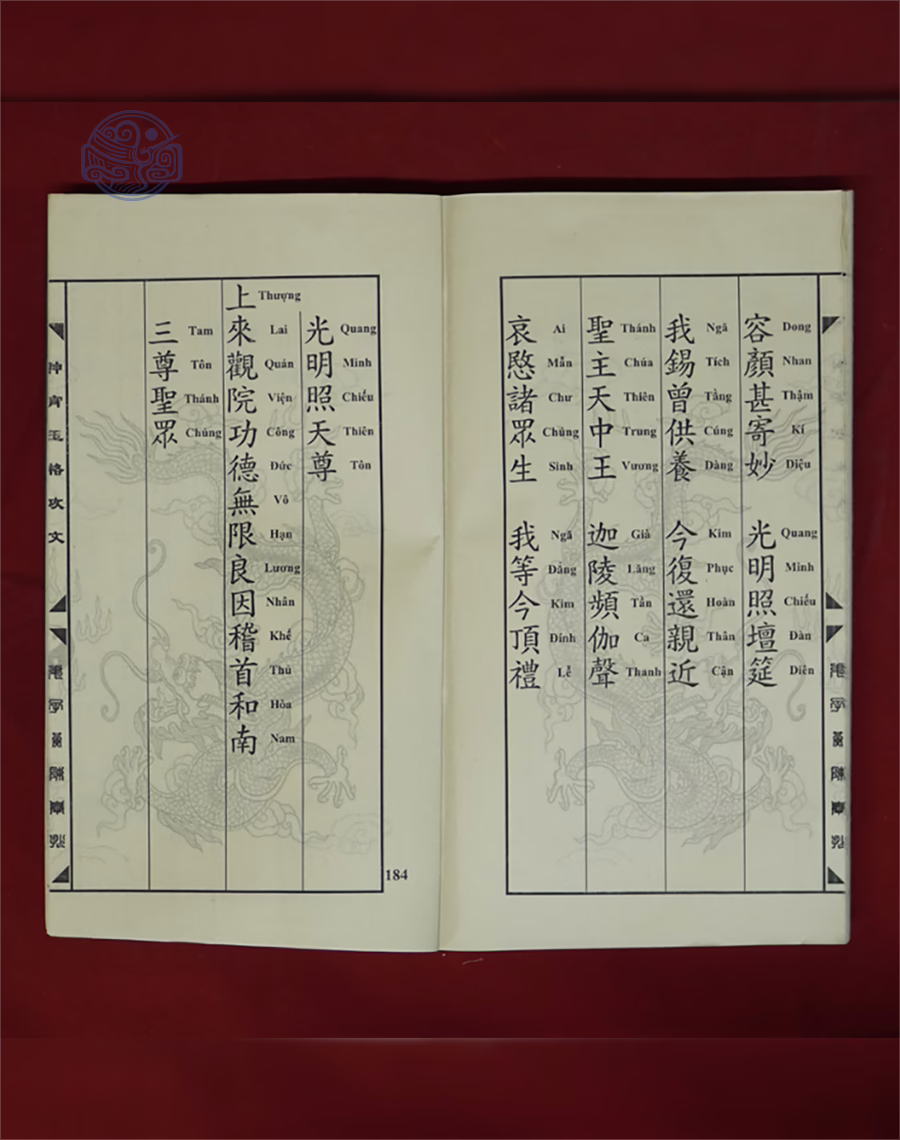 容顏甚寄妙 光明照壇筵
Dong Nhan Thậm Kí Diệu Quang Minh Chiếu Đàn Diên
我錫曾供養 今復還親近
Ngã Tích Tằng Cúng Dàng Kim Phục Hoàn Thân Cận
聖主天中王 迦陵頻伽聲
Thánh Chúa Thiên Trung Vương Già Lăng Tần Ca Thanh
哀愍諸眾生 我等今頂禮
Ai Mẫn Chư Chúng Sinh Ngã Đẳng Kim Đính Lễ
光明照天尊
Quang Minh Chiếu Thiên Tôn
上來觀院功德無限良因稽首和南
Thượng Lai Quán Viện Công Đức Vô Hạn Lương Nhân Khể Thủ Hòa Nam
三尊聖眾
Tam Tôn Thánh Chúng
184